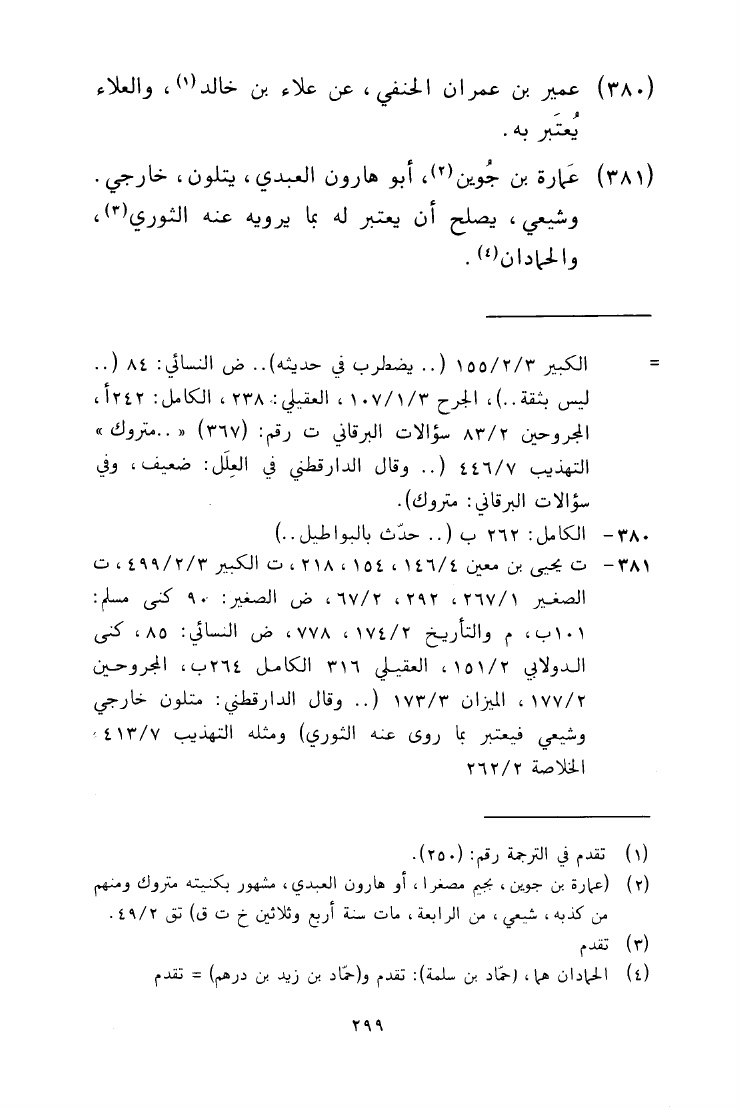 (٣٨٠) عمير بن عمران الحنفي، عن علاء بن خالد(١)، والعلاء
يُعتَبر به.
(٣٨١) عَمارة بن جُوين(٢)، أبو هارون العبدي، يتلون، خارجي.
وشيعي، يصلح أن يعتبر له بما يرويه عنه الثوري(٣)،
والحمادان(٤).
= الكبير ١٥٥/٢/٣ (.. يضطرب في حديثه).. ض النسائي: ٨٤ (..
ليس بثقة..)، الجرح ١٠٧/١/٣، العقيلي: ٢٣٨، الكامل: ٢٤٢أ،
المجروحين ٨٣/٢ سؤالات البرقاني ت رقم: (٣٦٧) «..متروك»
التهذيب ٤٤٦/٧ (.. وقال الدارقطني في العِلَل: ضعيف، وفي
سؤالات البرقاني: متروك).
٣٨٠- الكامل: ٢٦٢ ب (.. حدّث بالبواطيل..)
٣٨١- ت يحيى بن معين ١٤٦/٤، ١٥٤، ٢١٨، ت الكبير ٤٩٩/٢/٣، ت
الصغير ٢٦٧/١، ٢٩٢، ٦٧/٢، ض الصغير: ٩٠ كنى مسلم:
١٠١ب، م والتأريخ ١٧٤/٢، ٧٧٨، ض النسائي: ٨٥، كنى
الدولابي ١٥١/٢، العقيلي ٣١٦ الكامل ٢٦٤ب، المجروحين
١٧٧/٢، الميزان ١٧٣/٣ (.. وقال الدارقطني: متلون خارجي
وشيعي فيعتبر بما روى عنه الثوري) ومثله التهذيب ٤١٣/٧،
الخلاصة ٢٦٢/٢
(١) تقدم في الترجمة رقم: (٢٥٠).
(٢) (عمارة بن جوين، بجيم مصغرا، أو هارون العبدي، مشهور بكنيته متروك ومنهم
من كذبه، شيعي، من الرابعة، مات سنة أربع وثلاثين خ ت ق) تق ٤٩/٢.
(٣) تقدم
(٤) الحمادان هما، (حمّاد بن سلمة): تقدم و(حمّاد بن زيد بن درهم) = تقدم
٢٩٩